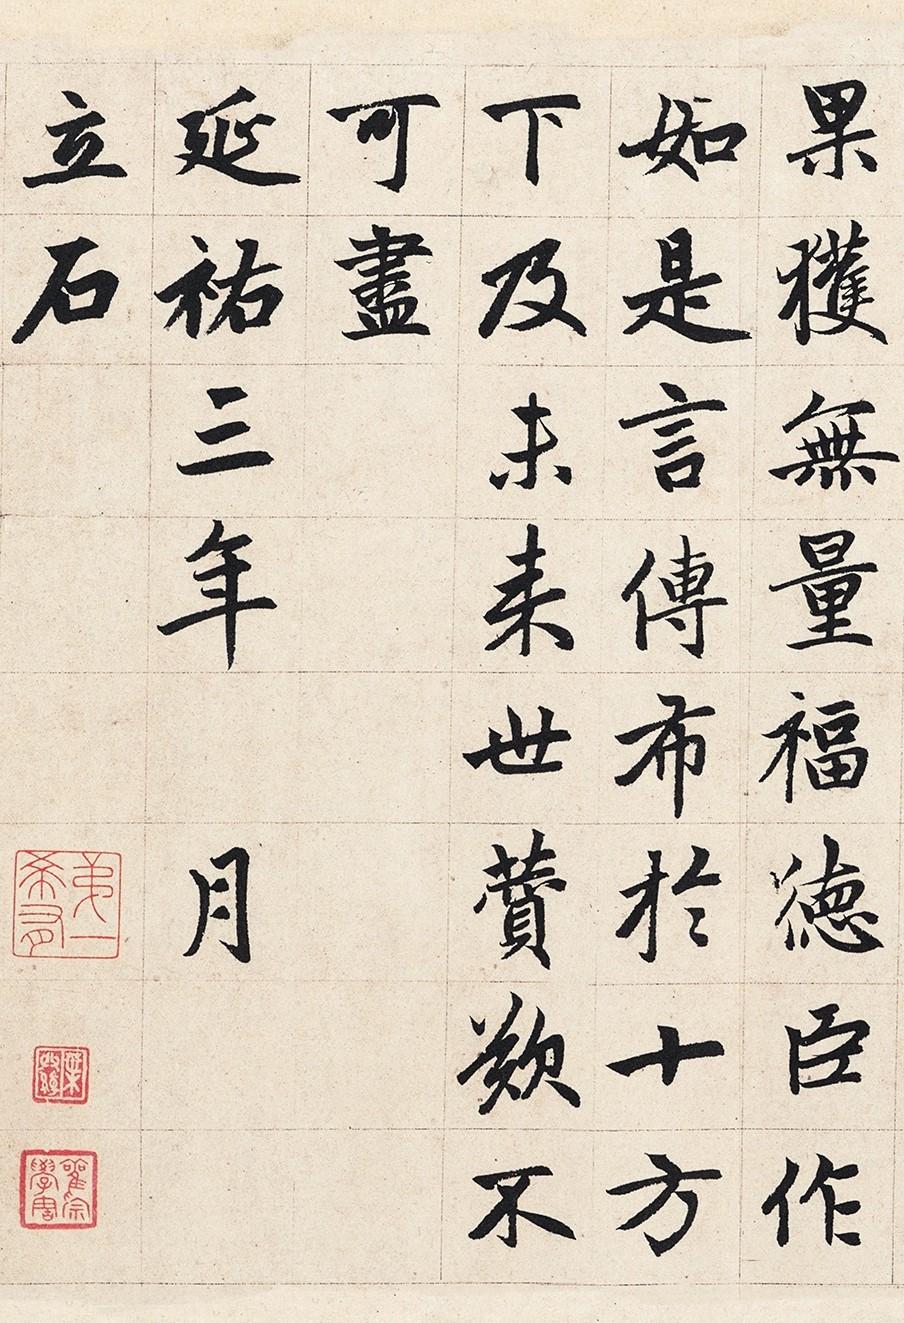 果獲無量福德臣作
如是言傳布於十方
下及未来世賛歎不
可盡
延祐三年　月
立石